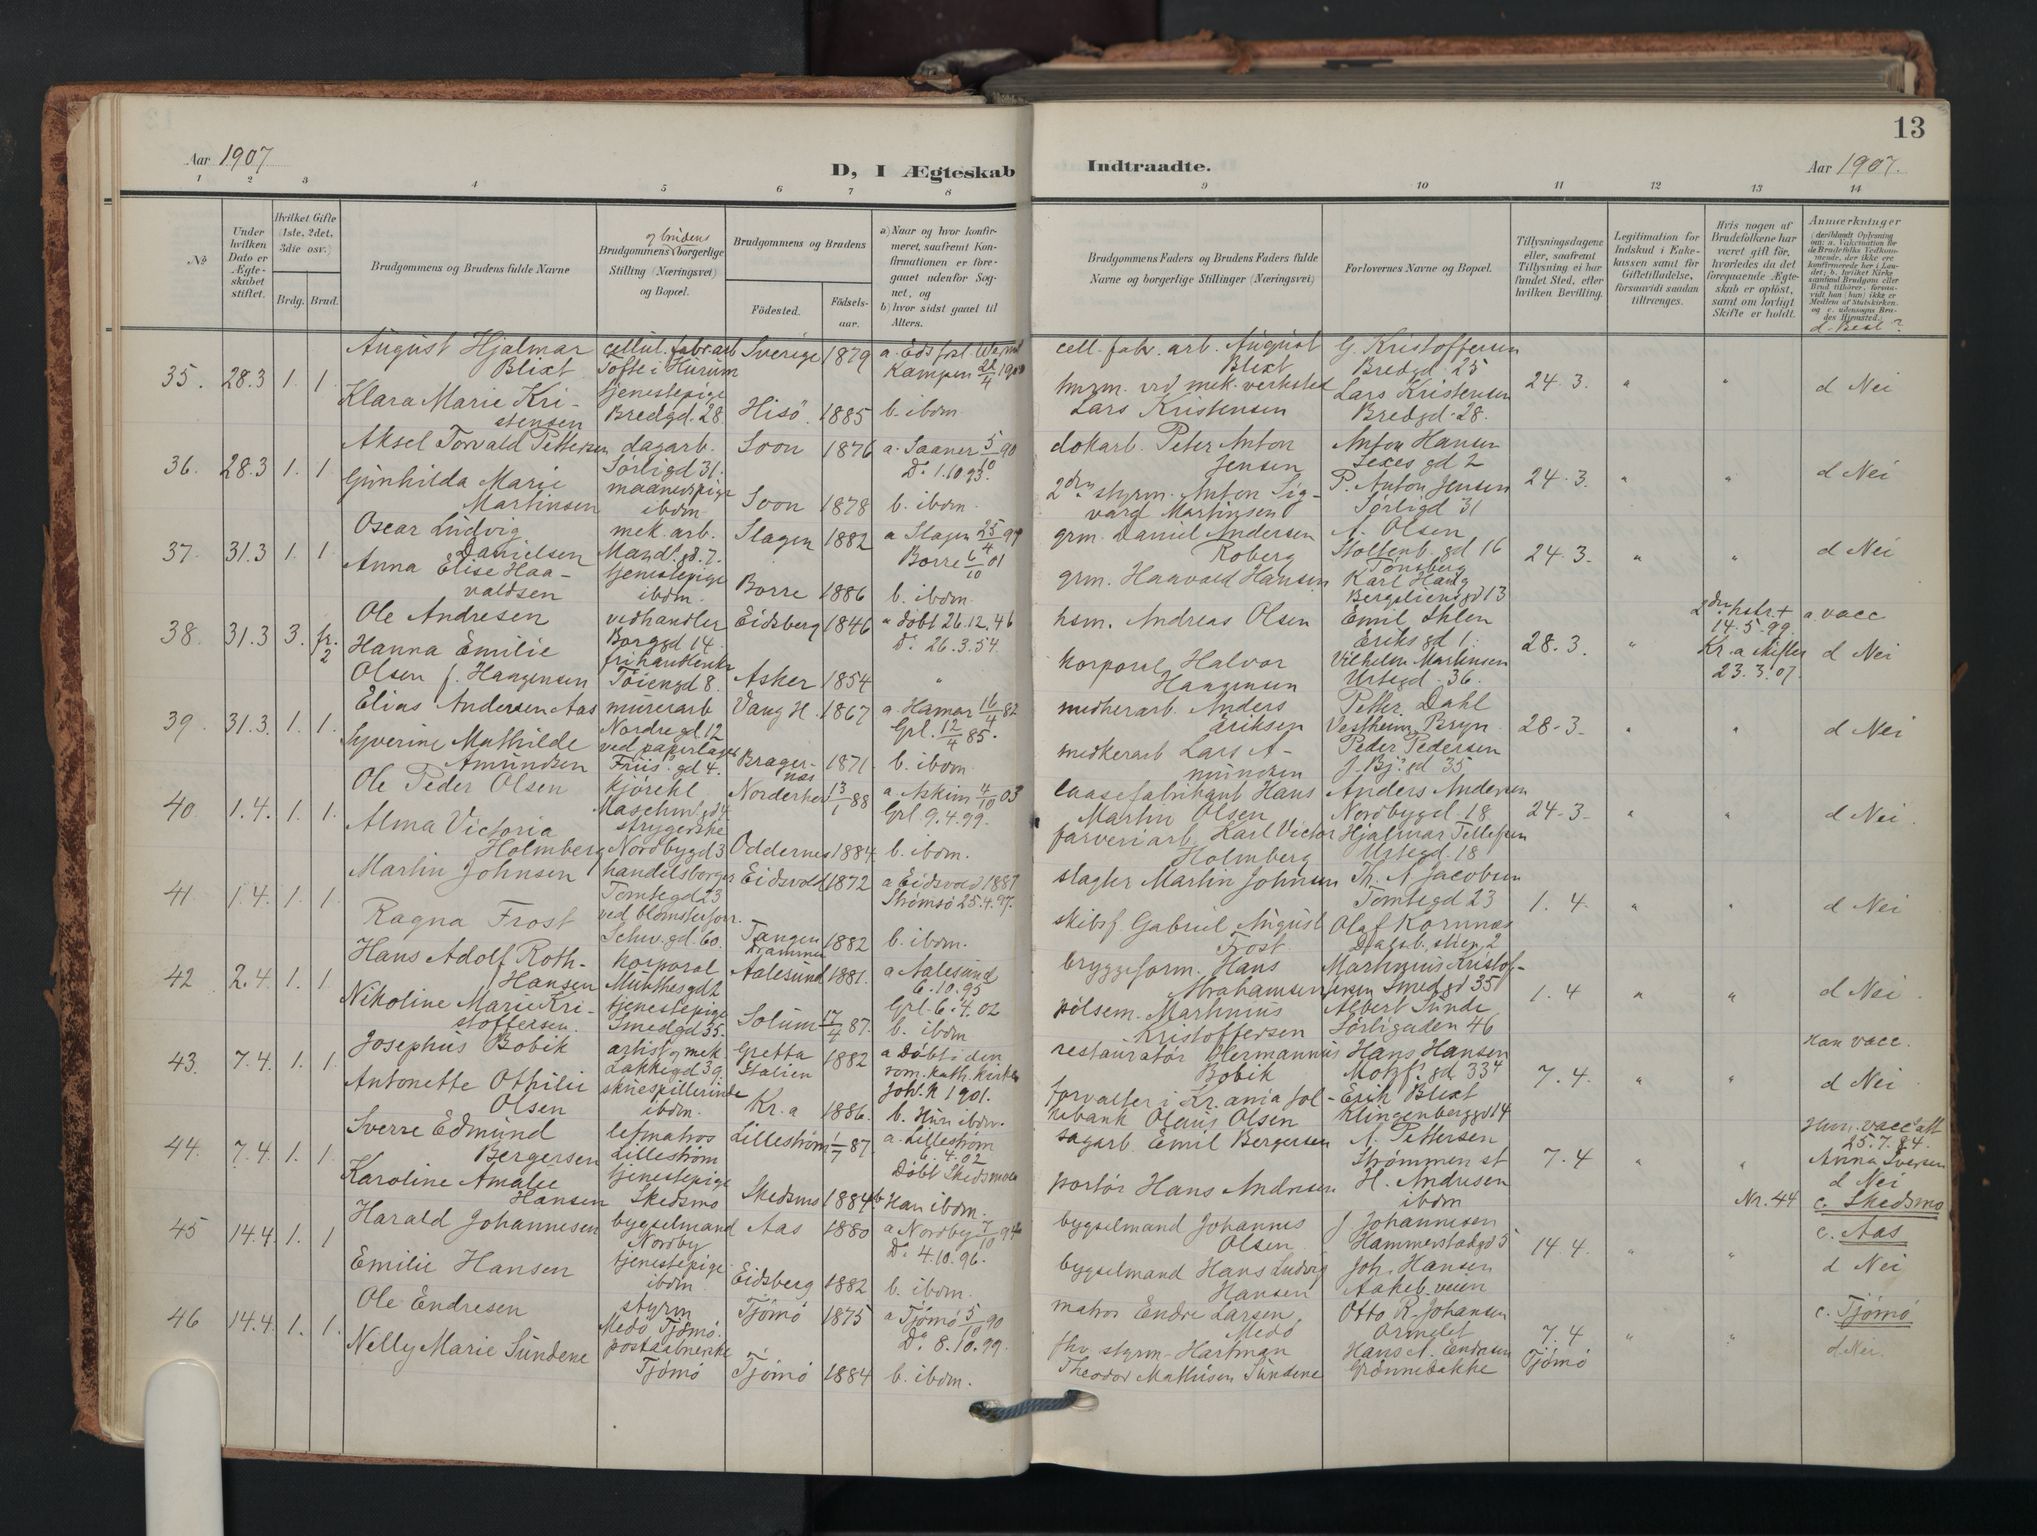 13
Aar 1907
D, I Ægteskab
Indtraadte.
Aar 1907.
1 2 3 4 5 6 7 8 9 10 11 12 13 14
No
Under hvilken Dato er Ægteskabet stiftet.
Hvilket Gifte (1ste, 2det, 3die osv.)
Brdg. Brud.
Brudgommens og Brudens fulde Navne
og brudens
Brudgommens borgerlige Stilling (Næringsvei) og Bopæl.
Brudgommens og Brudens
Födested. Födselsaar.
a) Naar og hvor konfirmeret, saafremt Konfirmationen er foregaaet udenfor Sognet, og
b) hvor sidst gaaet til Alters.
Brudgommens Faders og Brudens Faders fulde Navne og borgerlige Stillinger (Næringsvei)
Forlovernes Navne og Bopæl.
Tillysningsdagene eller, saafremt Tillysning ei har fundet Sted, efter hvilken Bevilling.
Legitimation for Indskud i Enkekassen samt for Giftetilladelse, forsaavidt saadan tiltrænges.
Hvis nogen af Brudefolkene har været gift för, hvorledes da det foregaaende Ægteskab er oplöst, samt om lovligt Skifte er holdt.
Anmærkninger
d. Besl.?
35. 28.3 1. 1. August Hjalmar Blixt
cellul. fabr. arb Tofte i Hurum
Sverige 1879
cell. fabr. arb. August Blixt
G. Kristoffersen Bredgd. 25
Klara Marie Kristensen
tjenestepige Bredgd. 28.
Hisö. 1885 b. ibdm.
Lars Kristensen
Lars Kristensen Bredgd. 28.
24.3. " " d Nei
36. 28.3 1. 1 Aksel Torvald Pettersen
dagarb. Sörligd 31.
Soon 1876 a. Saaner 5/10 90
Do 1.10 93.
dokarb. Peter Anton Jensen
Anton Hansen
Gunhilda Marie Martinsen
ibdm
Soon 1878 b. ibdm.
styrm. Anton Sigvard Martinsen
P. Anton Jensen Sörligd 31
24.3. " " d Nei
37. 31.3 1. 1 Oscar Ludvig Danielsen
mek. arb.
Slagen 1882 a Slagen 25/4 99
Borre 6/10 01
grm. Daniel Andersen Roberg
A. Olsen Stoltenb. gd 16 Tönsberg
Anna Elise Haavaldsen
tjenestepige ibdm.
Borre 1886 b. ibdm.
grm. Haavald Hansen
Karl Haug Bergsliensgd 13
24.3. " " d Nei
38. 31.3 3. fr. 2 Ole Andresen
vedhandler Borggd 14.
Eidsberg 1846 a döbt 26.12.46
Do 26.3.54.
hsm. Andreas Olsen
Emil Ihlen Eriks gd 1.
Hanna Emilie Olsen f. Haagensen
Töiengd 8.
Asker 1854 "
korporal Halvor Haagensen
Vilhelm Martinsen Urtegd. 36.
28.3. "
14.5.99 Kr.a skifter 23.3.07.
a. vacc
d Nei
39. 31.3. 1. 1. Elias Andersen Aas
murerarb Nordregd 12
Vang H. 1867 a. Hamar 16/4 82
Grl. 12/4 85.
Anders Eriksen
Petter Dahl Vestheim, Bryn.
Syverine Mathilde Amundsen
ved papirlager Friis. gd 4.
Bragernæs 1871. b. ibdm.
Lars Amundsen
Peder Pedersen
28-3- " " d Nei
40. 1.4. 1. 1. Ole Peder Olsen
Norderhov 13/1 88 a. Askim 4/10 03
Grl 9.4.99.
Hans Martin Olsen
Anders Andersen Nordbygd. 18
Alma Victoria Holmberg
strygerske Nordbygd 3
Oddernes 1884 b. ibdm.
farveriarb Karl Victor Holmberg
Hjalmar Tellefsen Urtegd. 18
24-3- " " d Nei.
41. 1.4. 1. 1 Martin Johnsen
handelsborger Tomtegd 23
Eidsvold 1872 a Eidsvold 1887
Strömsö 25.4.97.
slagter Martin Johnsen
Th. A Jacobsen Tomtegd 23
Ragna Frost
ved blomsterforr. Schw. gd 60.
Tangen Drammen 1882 b. ibdm.
skibsf. Gabriel August Frost.
Olaf Kornnæs
1.4. " " d Nei
42 2.4. 1. 1 Hans Adolf Roth-Hansen
korporal Munthesgd 2
Aalesund 1881. a Aalesund 6.10.95
Grl. 6.4.02
bryggeform. Hans Abrahamsen
Marthinius Kristoffersen Smedgd 35
Nikoline Marie Kristoffersen.
tjenestepige Smedgd 35.
Solum 17/4 87. b. ibdm
pölsem. Marthinius Kristoffersen
Albert Sunde Sörligaden 46
1.4 " " d Nei.
43. 7.4. 1. 1. Josephus Bobik
artist og mek. Lakkegd 39.
Gretta Italien 1882 a Döbt i den rom. kath. kirke
Joh. N 1901.
restauratör Hermannus Bobik
Hans Hansen
Antonette Othilie Olsen
skuespillerinde ibdm.
Kr.a 1886. b. Hun ibdm.
forvalter i Kr.ania folkebank Olaus Olsen
Erik Blixt Klingenberggd 14
7.4. " " Han vacc.
d Nei
44. 7.4. 1. 1. Sverre Edmund Bergersen
letmatros Lilleström
Lilleström 1/7 87. a. Lilleström 6.4.02
Döbt Skedsmo
sagarb Emil Bergersen
A. Pettersen Strömmen st
Karoline Amalie Hansen
tjenestepige Skedsmo
Skedsmo 1884 b Han ibdm.
portör Hans Andresen
H. Andresen ibdm
7.4 " "
Hun. vacc. att 25.7.84.
Anna Iversen
d Nei
Nr. 44 c. Skedsmo
45 14.4. 1. 1 Harald Johannesen
bygselmand Nordby
Aas 1880 a Nordby 7/10 94
Do 4.10.96.
bygselmand Johannes Olsen
J Johannesen Hammerstadgd 5
Emilie Hansen
tjenestepige ibdm
Eidsberg 1882 b. ibdm.
bygselmand Hans Ludvig Hansen
Joh. Hansen Aakeb. veien
14.4. " " c. Aas
d Nei
46 14.4. 1. 1. Ole Endresen
styrm Medö Tjömö.
Tjömö 1875 a Tjömö 5/10 90
Do 8.10.99.
matros Endre Larsen, Medö
Otto R. Johansen Ormelet
Nelly Marie Sundene
Tjömö
Tjömö 1884 b. ibdm.
fhv. styrm. Hartman Theodor Mathisen Sundene
Hans A. Endresen Grönnebakke
7.4 Tjömö " " c. Tjömö
d Nei.